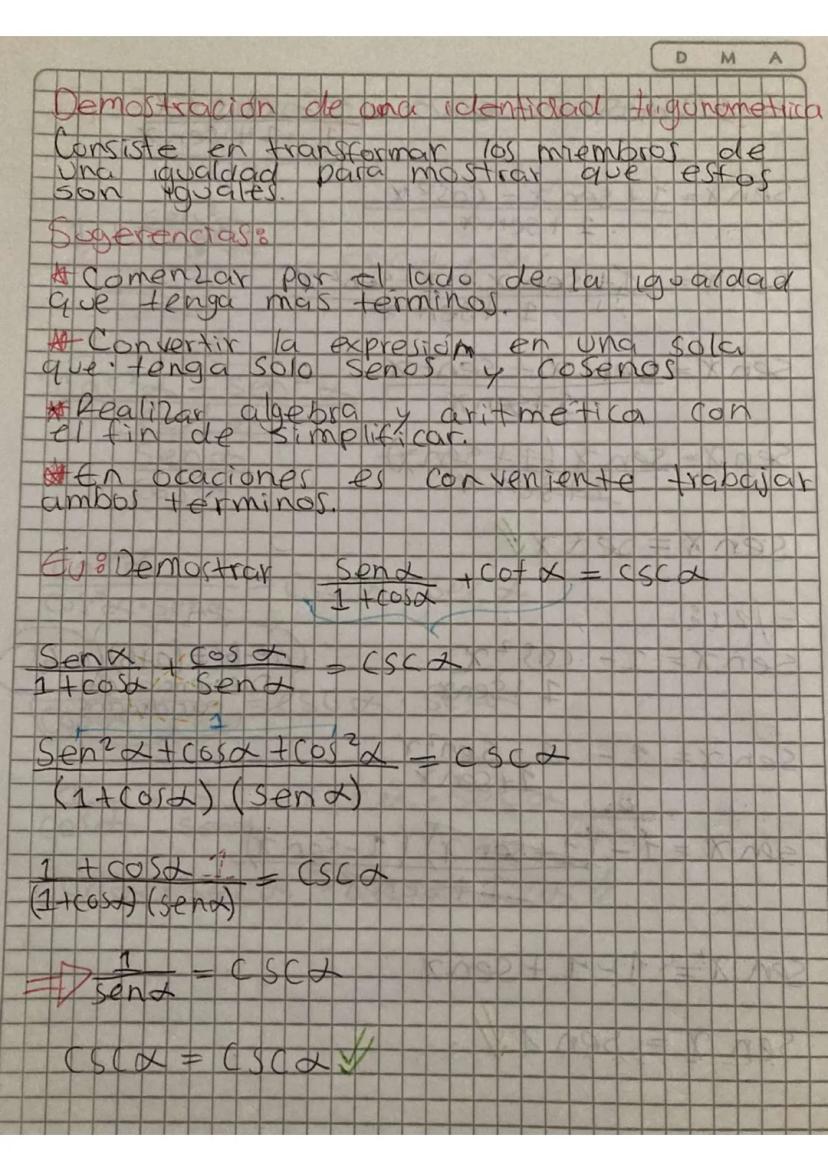 D M A
Demostración de una identidad trigonometrica
Consiste en transformar los miembros de
una igualdad para mostrar que estos
son iguales.
Sugerencias:
* Comenzar por el lado de la igualdad
que tenga más términos.
* Convertir la expresión en una sola
que tenga solo senos y cosenos
* Realizar algebra y aritmética con
el fin de simplificar.
* En ocaciones es conveniente trabajar
ambos términos.
Ej: Demostrar Senα/(1+cosα) + cot α = cscα
Senα/(1+cosα) + cos α/Senα = cscα
1
Sen²α+cosα+cos²α/(1+cosα)(senα) = cscα
1 + cosα 1/(1+cosα)(senα) = cscα
⇒ 1/senα = cscα
cscα = cscα ✓